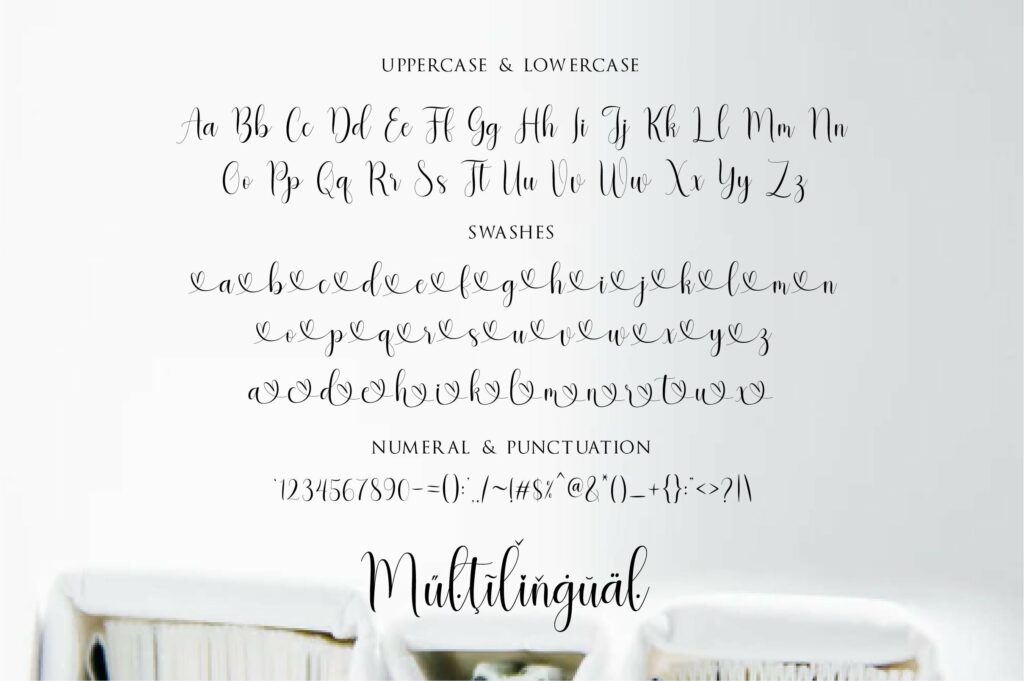 UPPERCASE & LOWERCASE
Aa Bb Cc Dd Ee Ff Gg Hh Ii Jj Kk Ll Mm Nn
Oo Pp Qq Rr Ss Tt Uu Vv Ww Xx Yy Zz
SWASHES
a b c d e f g h i j k l m n
o p q r s u v w x y z
a c d e h i k l m n r t u x
NUMERAL & PUNCTUATION
`1234567890-=();',./~!#$%^@&*()_+{}:"<>?|\
Műlţĩľiňġŭäŀ